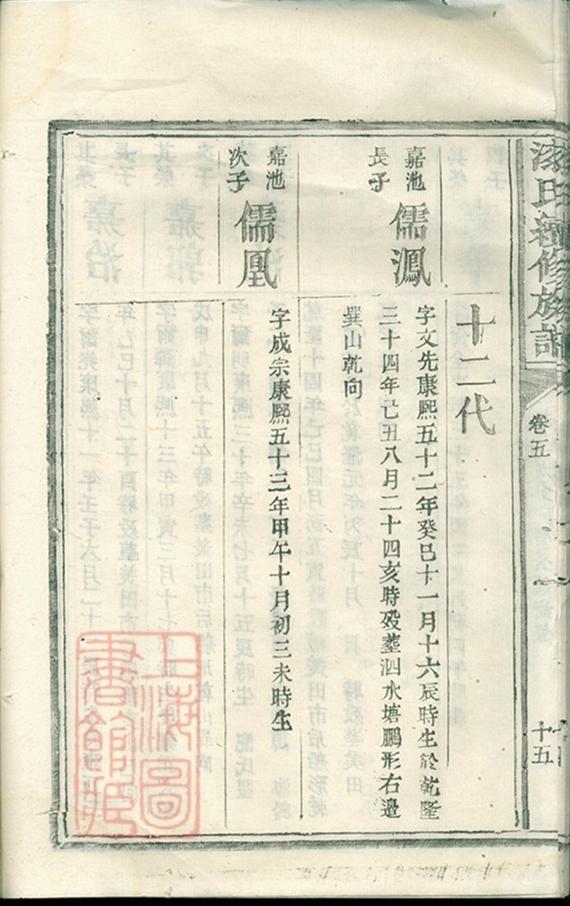 氏續修族譜
卷五
十五
十二代
嘉池
長子
儒鳳
字文先康熙五十二年癸巳十一月十六辰時生於乾隆
三十四年己丑八月二十四亥時殁塟泗水塘鵬形右邉
巽山乾向
嘉池
次子
儒凰
字成宗康熙五十三年甲午十月初三未時生
上海圖
書館藏